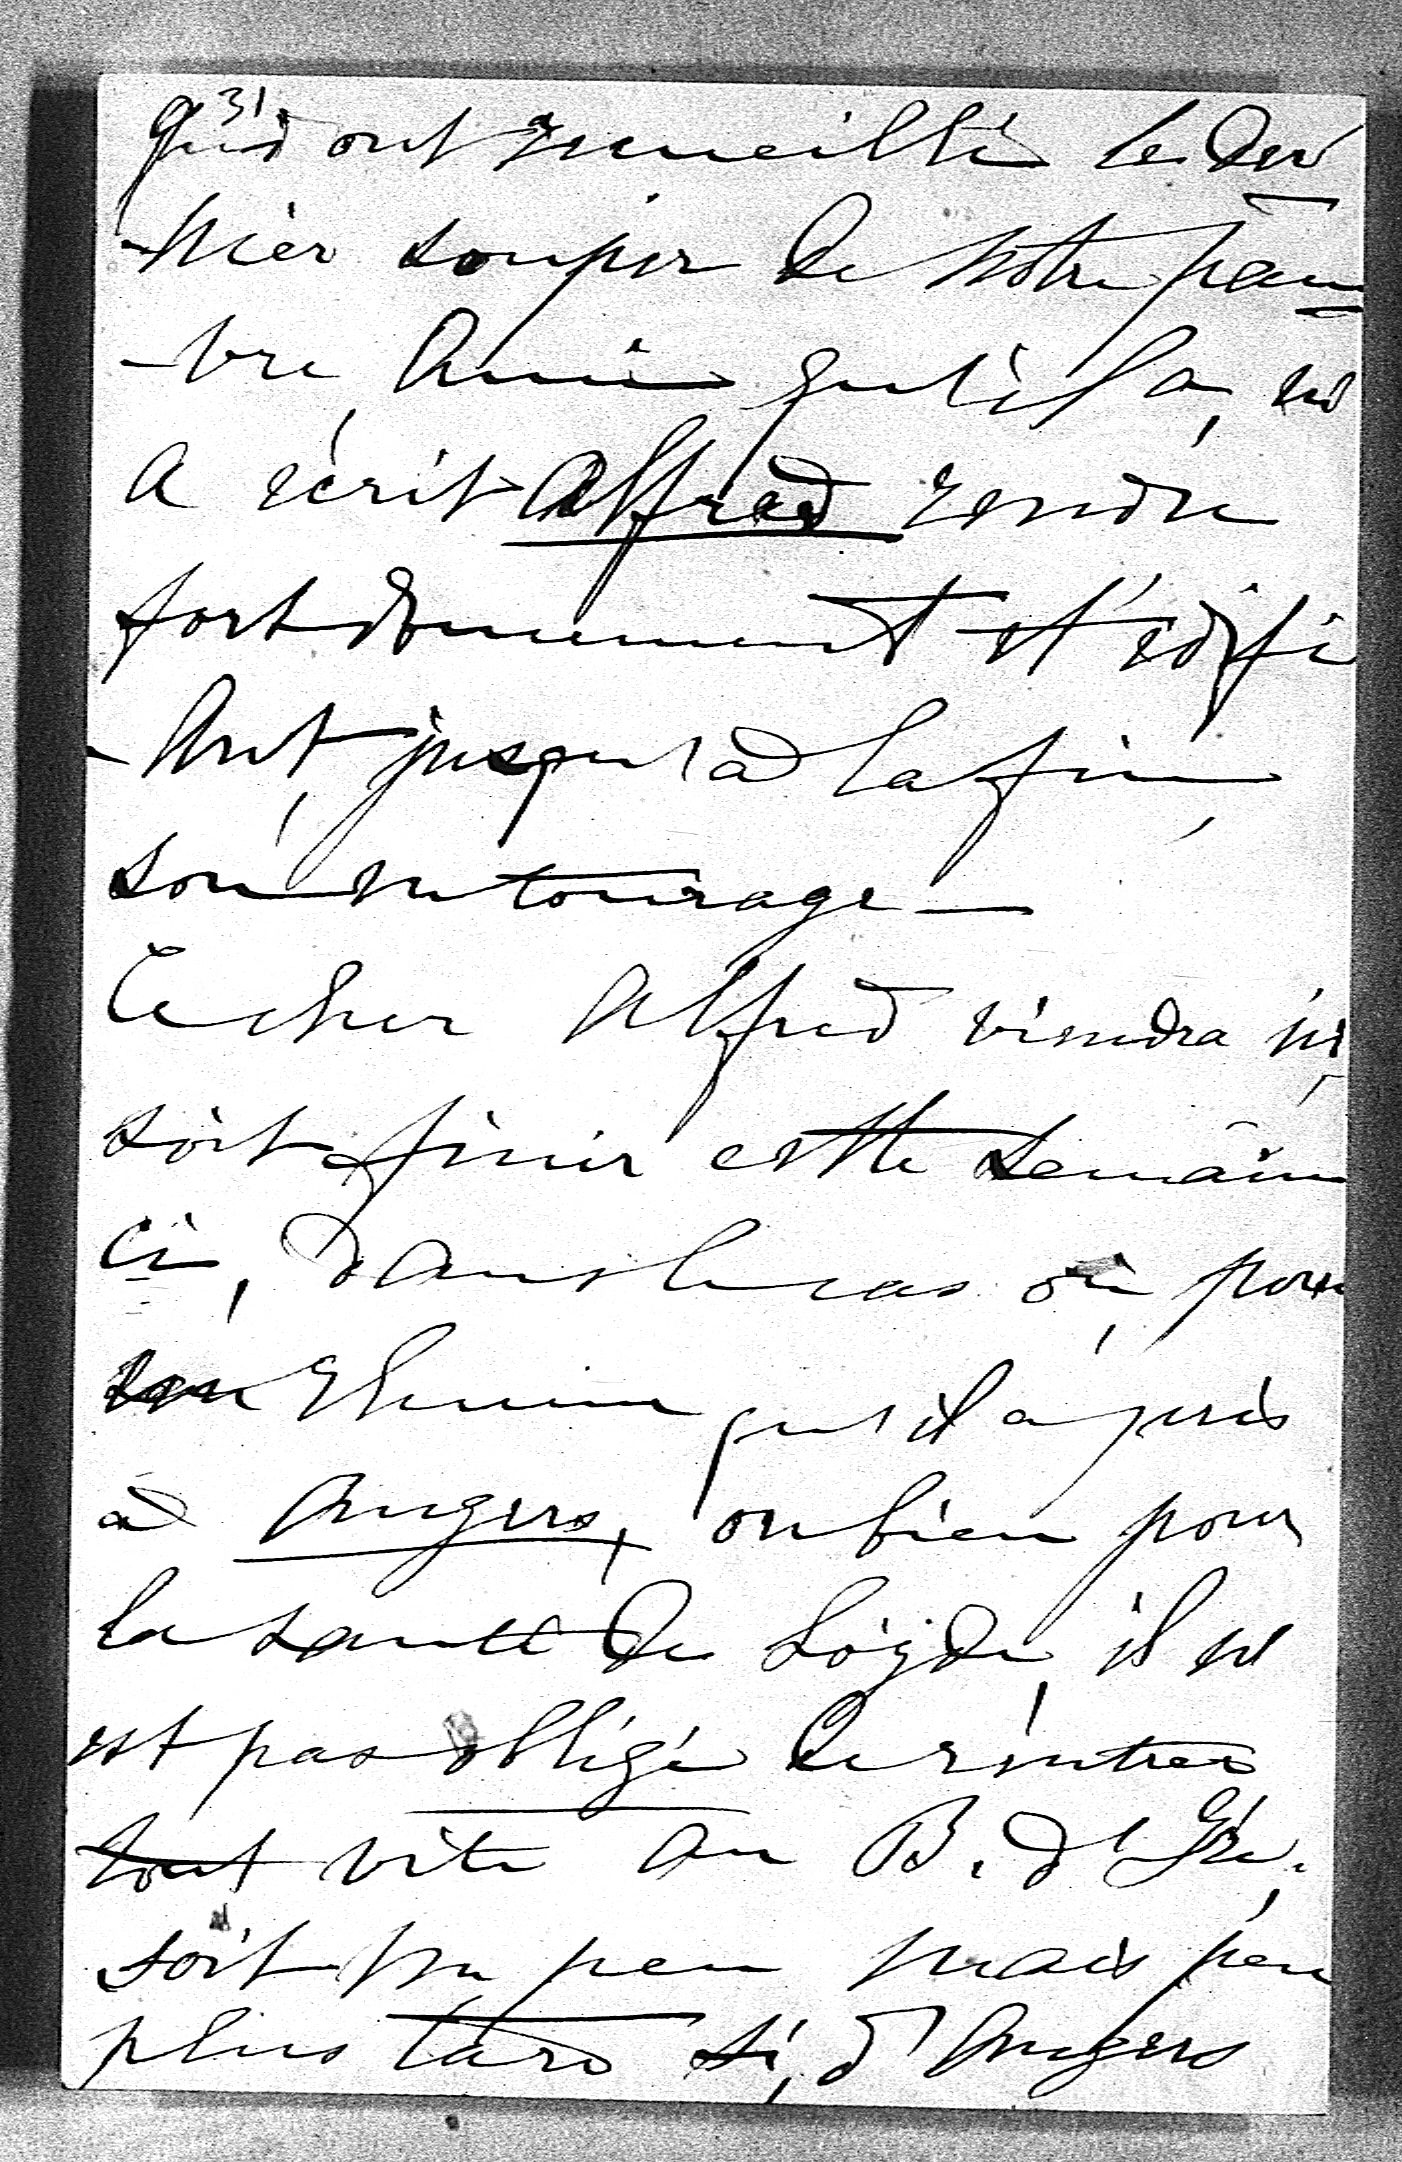 3)
qui ont recueilli le der
-nier soupir de notre pau
-vre Ami qu'il a, m'
a écrit Alfred rendu
fort doucement et édifi
-Ant, jusqu'à la fin,
son entourage —
Ce cher Alfred viendra ici
soit finir cette semaine
ci, dans le cas où, pour
son Rhume qu'il a pris
à Angers, ou bien pour
la santé de il n'
est pas obligé de rentrer
tout vite au B. d'
soit un peu mais peu
plus tard si, d'Angers